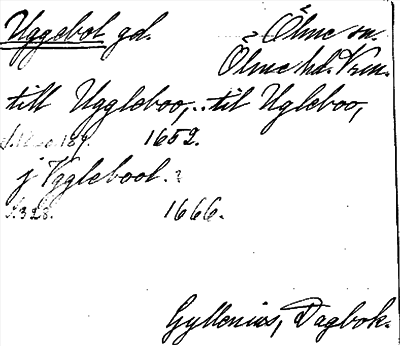 Uggebol gd. Ölme sn
Ölme hd. Vrm.
till Uggleboo, .. til Ugleboo,
1652.
j Vgglebool.
S. 328. 1666.
Gyllenius, Dagbok.